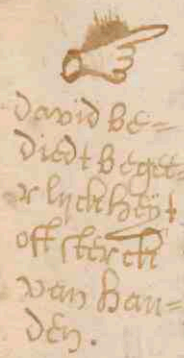 david be=
diedt begee=
rlyckheÿt
oft sterck
van han=
den.